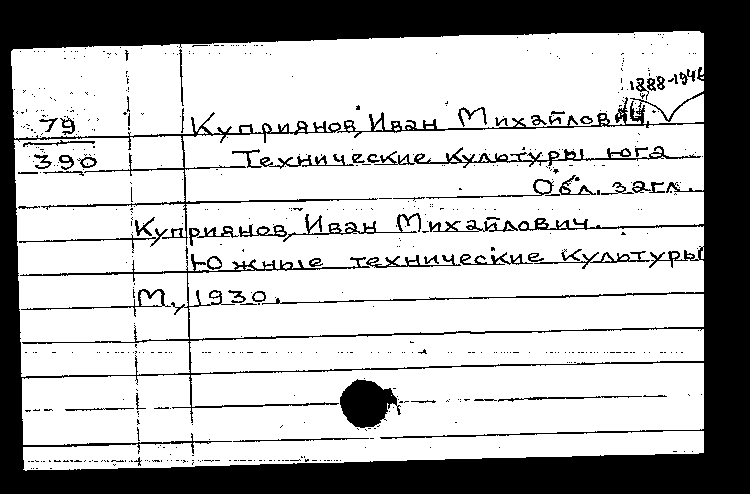 1888-1946
79 Куприянов, Иван Михайлович,
390 Технические культуры юга
Обл. загл.
Куприянов, Иван Михайлович.
Южные технические культуры
М., 1930.